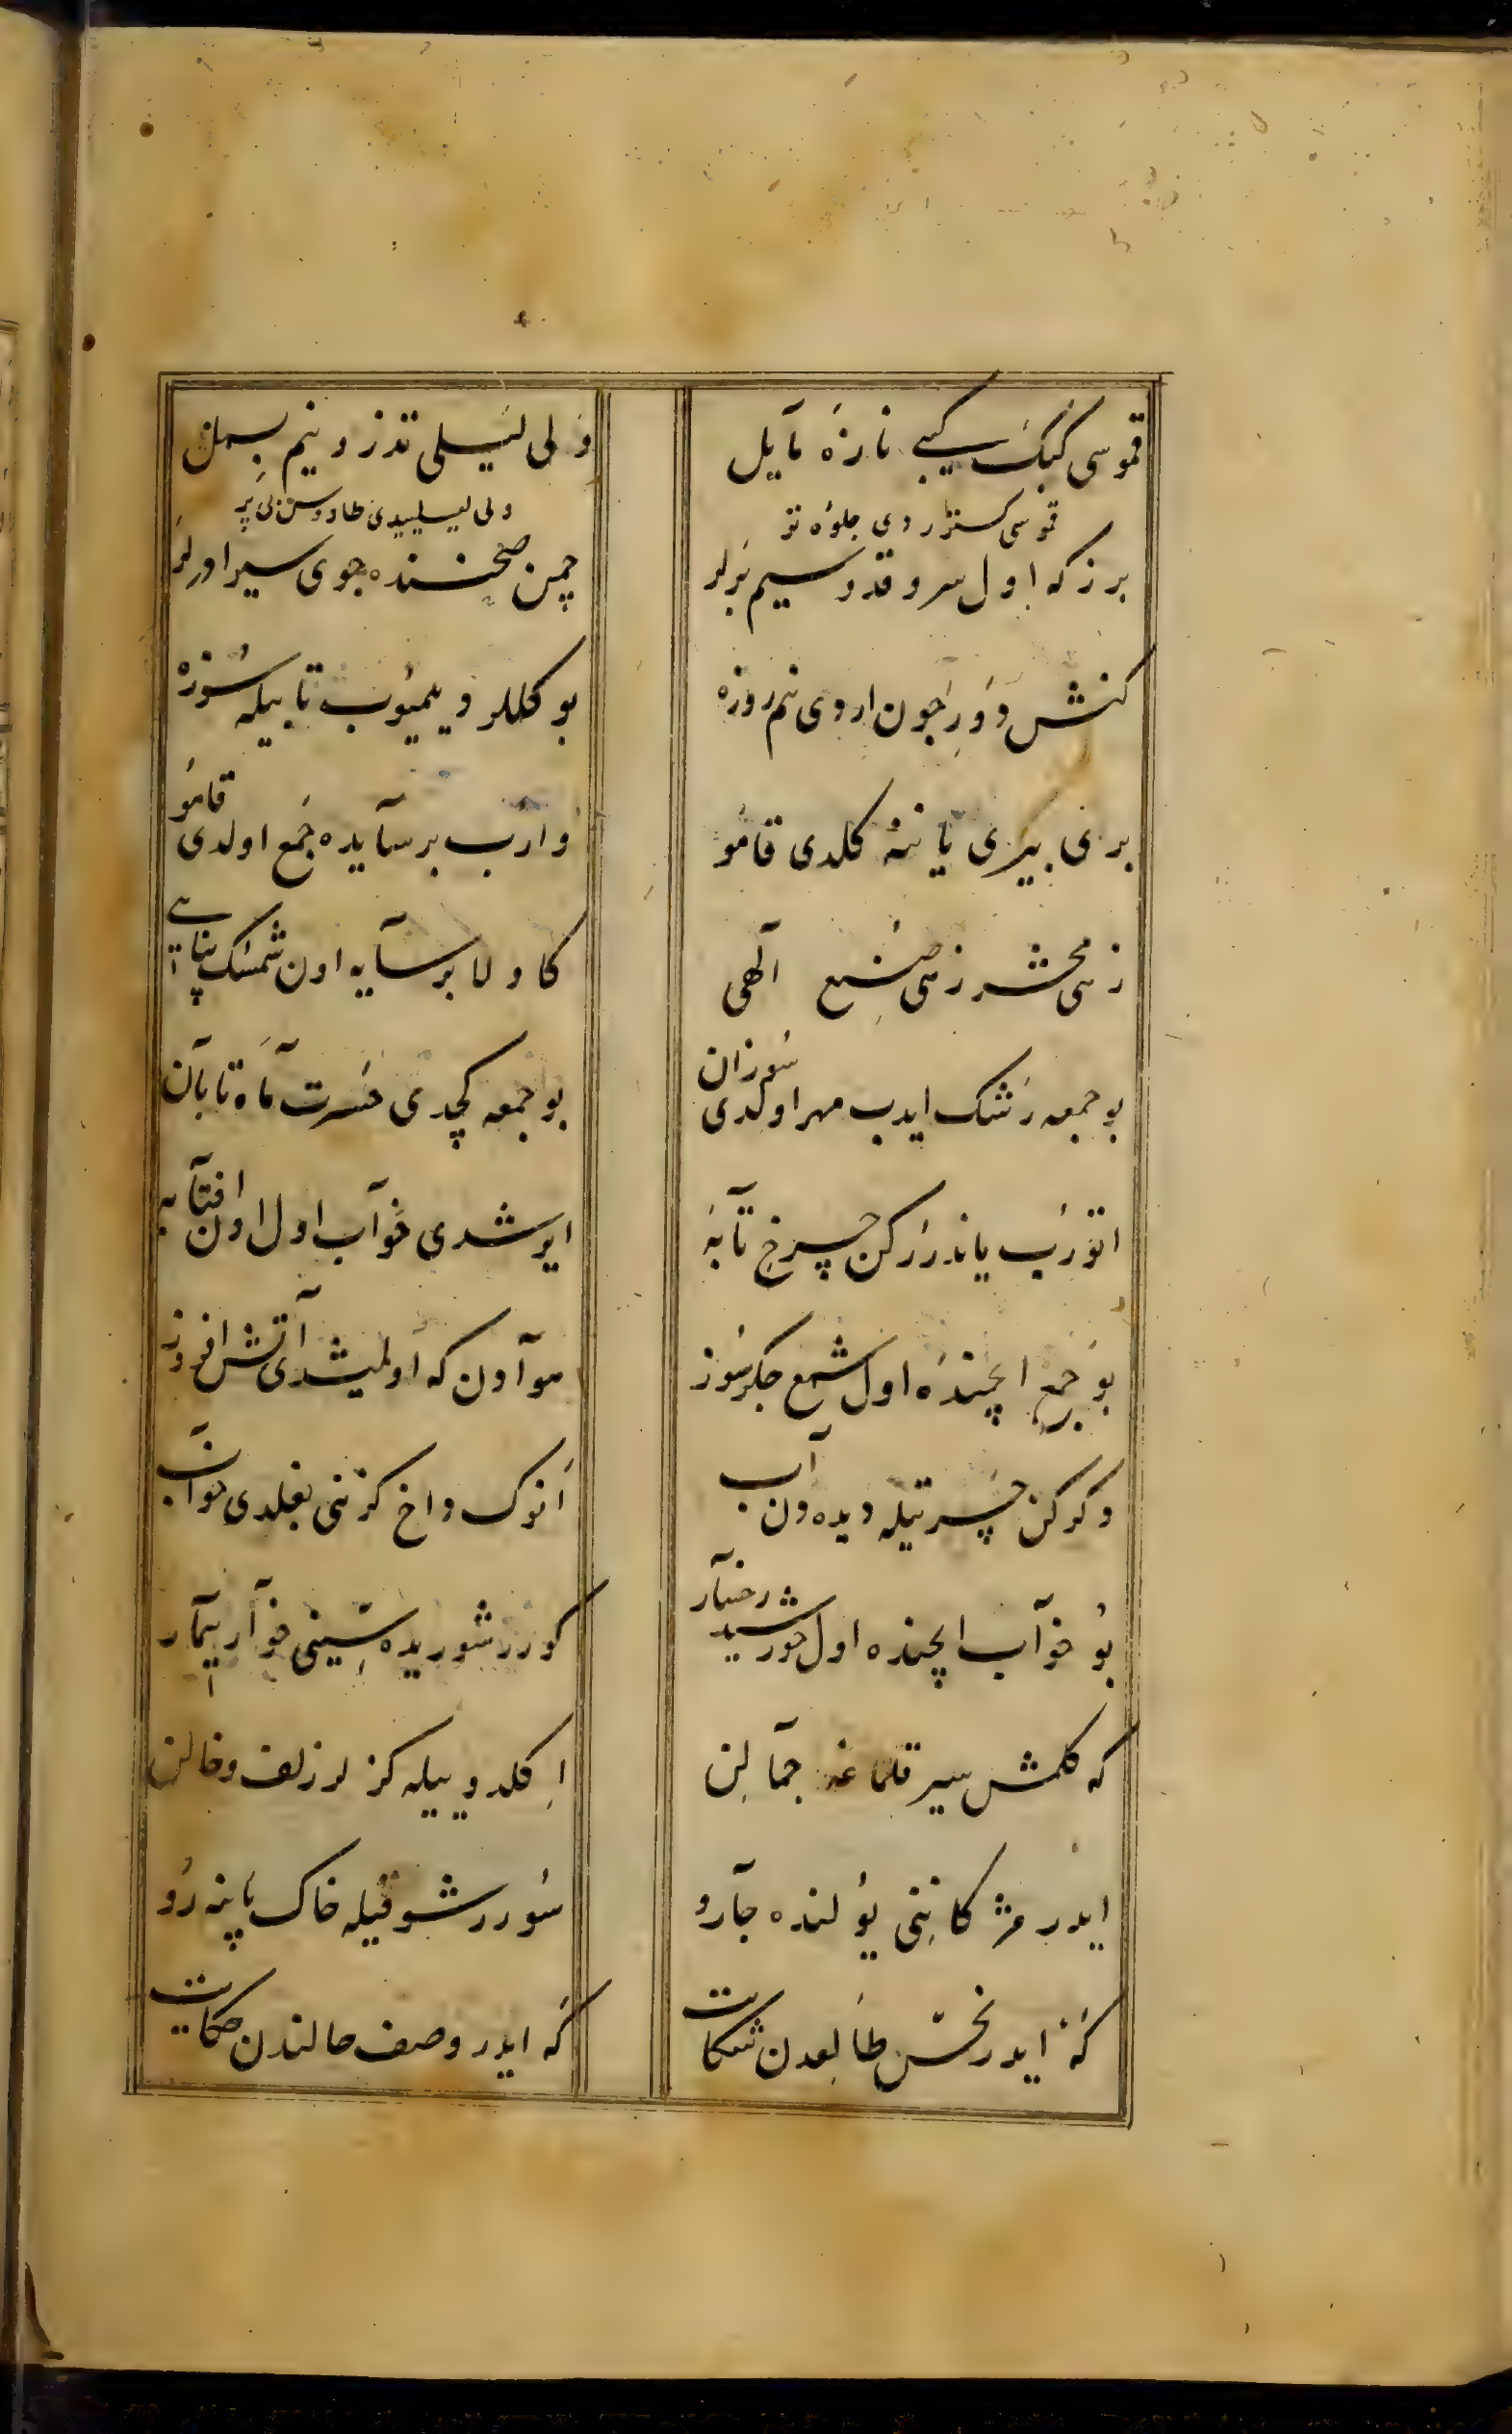 قموسی کبک کیبی نازه مآیل
ولی لیلی تذرو نیم بسمل
قموسی کستردی جلوه تر
ولی لیلییدی طاووس بی پر
برز که اول سرو قد و سیم برلر
چمن صحنسنده جوی سیر اورلر
کنش دور چون اردی نیم روزه
بو کللر دویلمیوب تابیله سوزه
بری بیری یاننه کلدی قامو
وارب بر سآیده جمع اولدی قامو
زهی محشر زهی صنع آلهی
کا ولا بر سآیه اون شمسک پناهی
بو جمعه رشک ایدب مهر اولدی سوزان
بو جمعه کچدی حسرت مآه تابآن
اتورب یاندررکن چرخ تآبه
ایرشدی خوآب اول اون افتآبه
بو جمع ایچنده اول شمع جکرسوز
موآون که اولمیشدی آتش افروز
دکرکن حسرتیله دیده ون آب
آنوک واخ کزننی بغلدی خوآب
بو خوآب ایچنده اول خورشید رخسآر
کورر شوریده سینی خوآر بیمآر
که کلمش سیر قلماغه جمآلن
اکلدوییله کزلر زلف و خالن
ایدر مژکاننی یولنده جآرو
سورر شوقیله خاک پاینه رو
که ایدر نحس طالعدن شکایت
که ایدر وصف حالندن حکایت